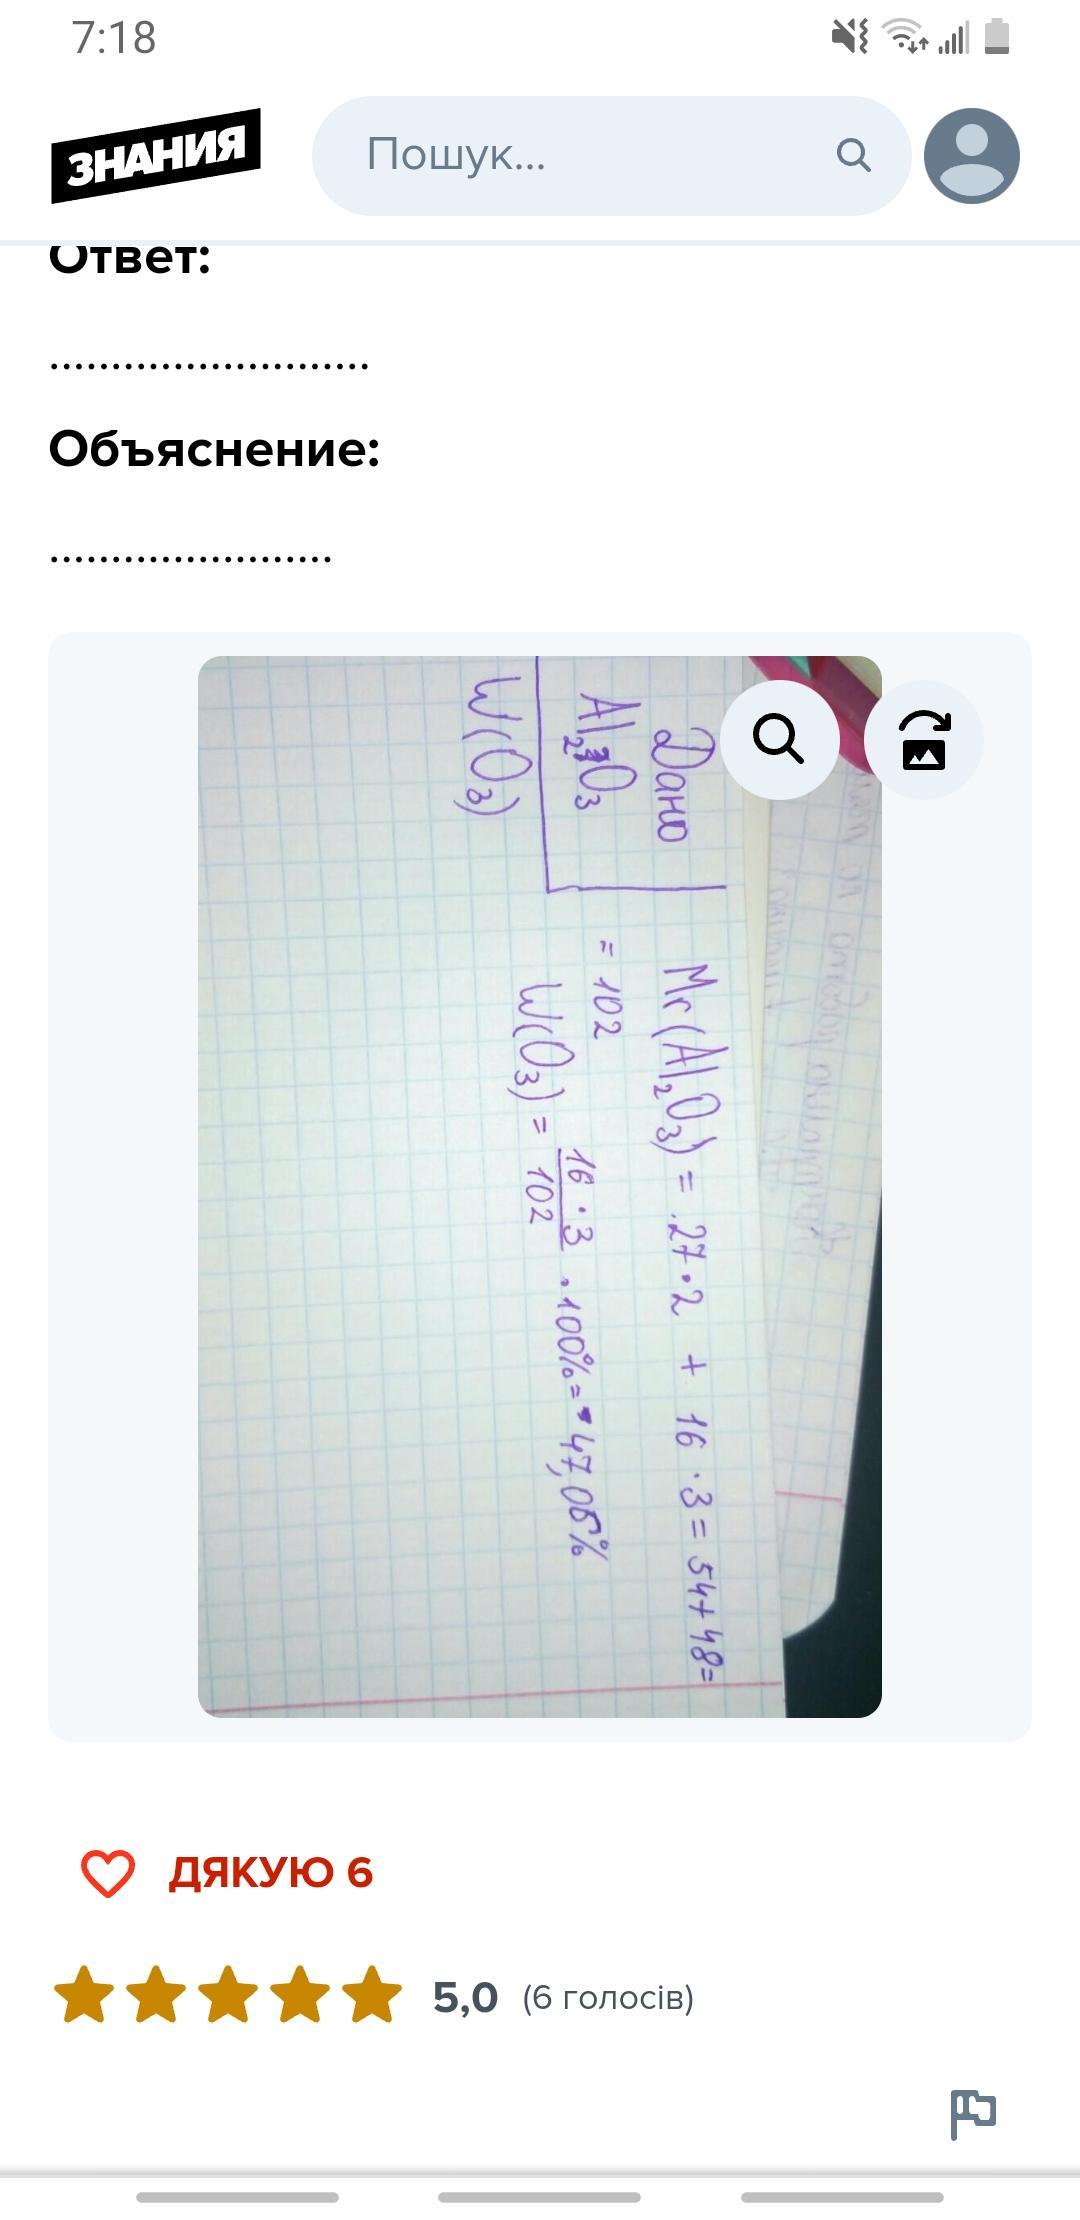 7:18
ЗНАНИЯ
Пошук...
Ответ:
..........................
Объяснение:
.......................
Дано
Al₂O₃
W(O₃)
Mr(Al₂O₃) = 27·2 + 16·3 = 54+48=
= 102
W(O₃) = 16·3/102 · 100% = 47,06%
ДЯКУЮ 6
5,0 (6 голосів)